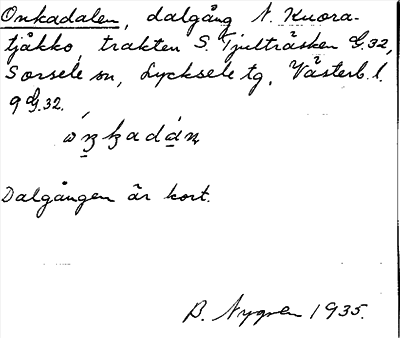 Onkadalen, dalgång N. Kuora-
tjåkko, trakten S. Tjulträsken G.32,
Sorsele sn, Lycksele tg, Västerb. l.
9 G.32.
Dalgången är kort.
B. Nygren 1935.